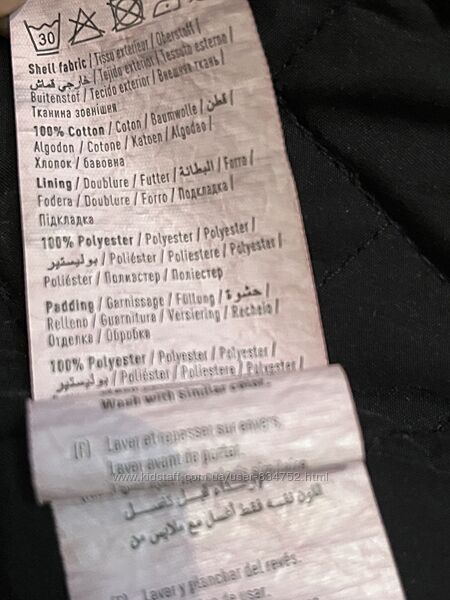 30
Shell fabric / Tissu extérieur / Oberstoff /
خارجي قماش / Tejido exterior / Tessuto esterno /
Buitenstof / Tecido exterior / Внешня ткань /
Тканина зовнішня
100% Cotton / Coton / Baumwolle / قطن /
Algodon / Cotone / Katoen / Algodao /
Хлопок / бавовна
Lining / Doublure / Futter / البطانة / Forra /
Fodera / Doublure / Forro / Подкладка /
Підкладка
100% Polyester / Polyester / Polyester /
بوليستير / Poliéster / Poliestere / Polyester /
Poliéster / Полиэстер / Поліестер
Padding / Garnissage / Füllung / حشوة /
Relleno / Guarnitura / Versiering / Recheio /
Отделка / Обробка
100% Polyester / Polyester / Polyester /
بوليستير / Poliéster / Poliestere / Polyester /
Wash with similar color.
Laver et repasser sur envers.
Laver avant de porter.
www.kidstaff.com.ua/user-634752.html
Lavar y planchar del revés.